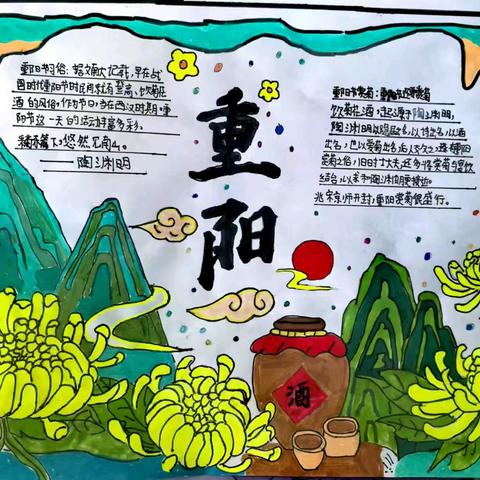 重阳节习俗：据文献记载，早在战
国时代重阳节时民间就有登高、饮菊花
酒的风俗，作为节日，在西汉时期，重
阳节这一天的活动丰富多彩。
篱下，悠然见南山。
——陶渊明
重阳
重阳节赏菊：重阳节赏菊
饮菊花酒，起源于陶渊明，
陶渊明以隐居出名，以诗出名，以酒
出名，也以爱菊出名；后人效之，遂有重阳
赏菊之俗，旧时士大夫，还多将赏菊与宴饮
结合，以求和陶渊明更接近。
北宋京师开封，重阳赏菊很盛行。
酒